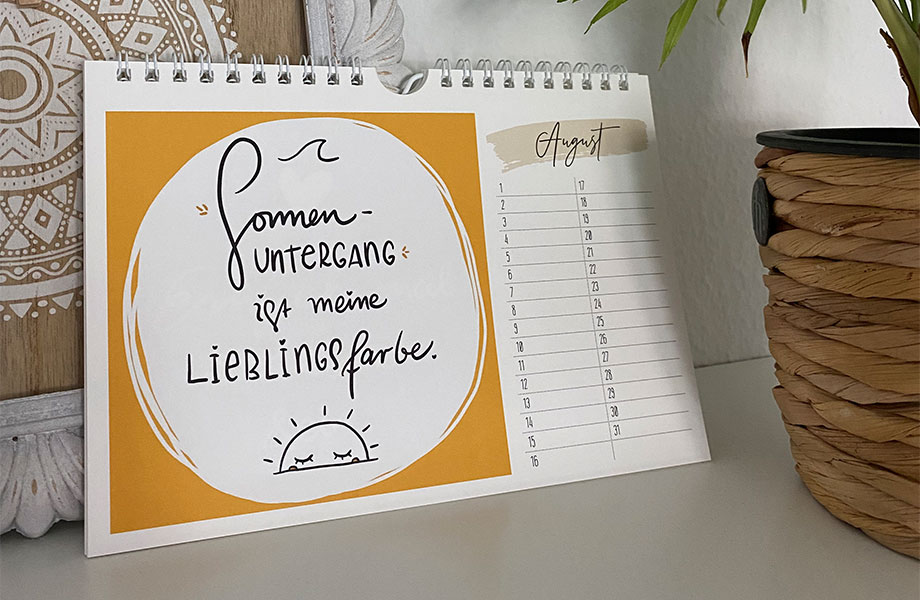 Sonnen-
UNTERGANG
ist meine
LIEBLINGSfarbe.
August
1
2
3
4
5
6
7
8
9
10
11
12
13
14
15
16
17
18
19
20
21
22
23
24
25
26
27
28
29
30
31